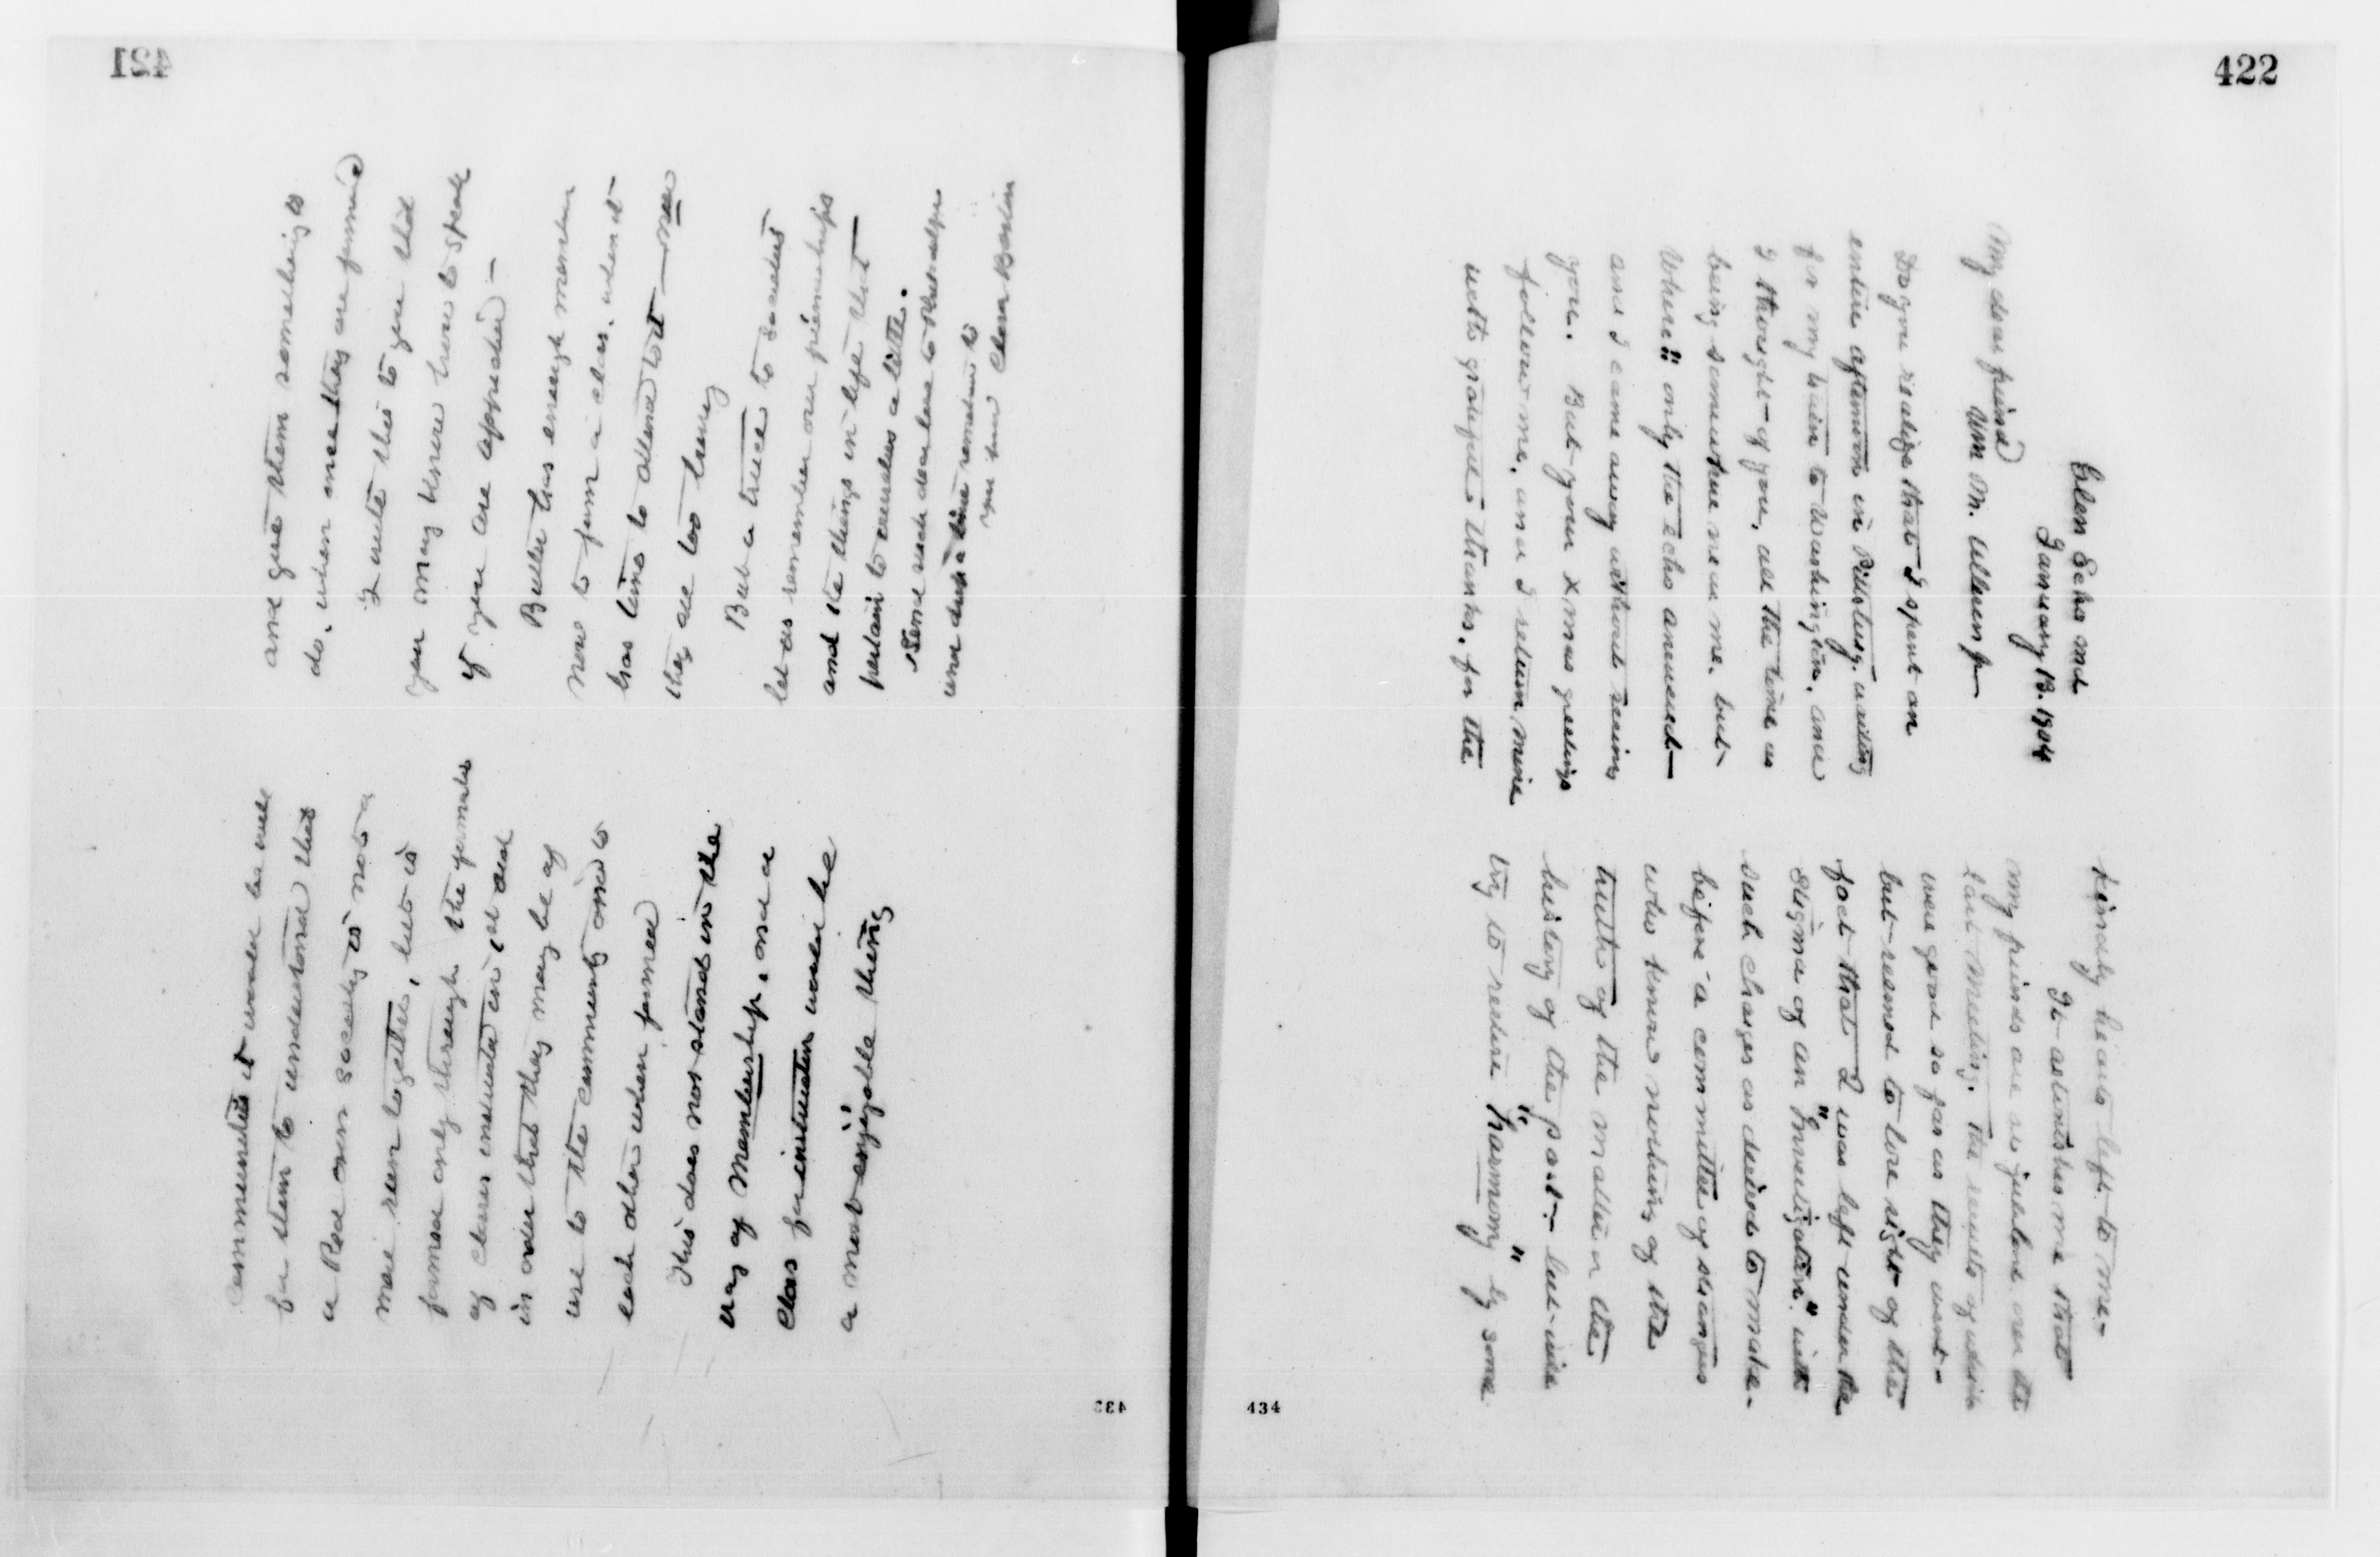 421
Communities it would be well
for them to understand that
a Red Cross society is not a
mere run together, but is
formed only through the formula
of classes instructed in 1st aid
in order that they may be of
use to the community and to
each other when formed
This does not stand in the
way of membership. and a
class for instruction would be
a most enjoyable thing
and give them something to
do, when once they are formed
I write this to you that
you may know how to speak
if you are approached —
Butler has enough members
now to form a class, when it
has time to attend to it — now
they are too busy
But a truce to societies
let us remember our friendships
and the things in life that
pertain to ourselves a little.
Send
and
Clara Barton
433
422
Glen Echo Md
January 13. 1904
My dear friend
Wm M.
Do you realize that I spent an
entire afternoon in Pittsburg. waiting
for my train to Washington, and
I thought of you, all the time as
being somewhere near me. but
"Where" only the echo answered —
and I came away without seeing
you. But your Xmas greetings
follow me, and I return mine
with grateful thanks, for the
kindly hearts left to me -
It astonishes me that
my friends are so jubilant over the
last meeting. The results of which
were good so far as they went -
but seemed to lose sight of the
fact that I was left under the
stigma of an "Investigation" with
such charges as desired to make.
before a committee of strangers
who knew nothing of the
truth of the matter or the
history of the past - but will
try to restore "harmony" by some
434